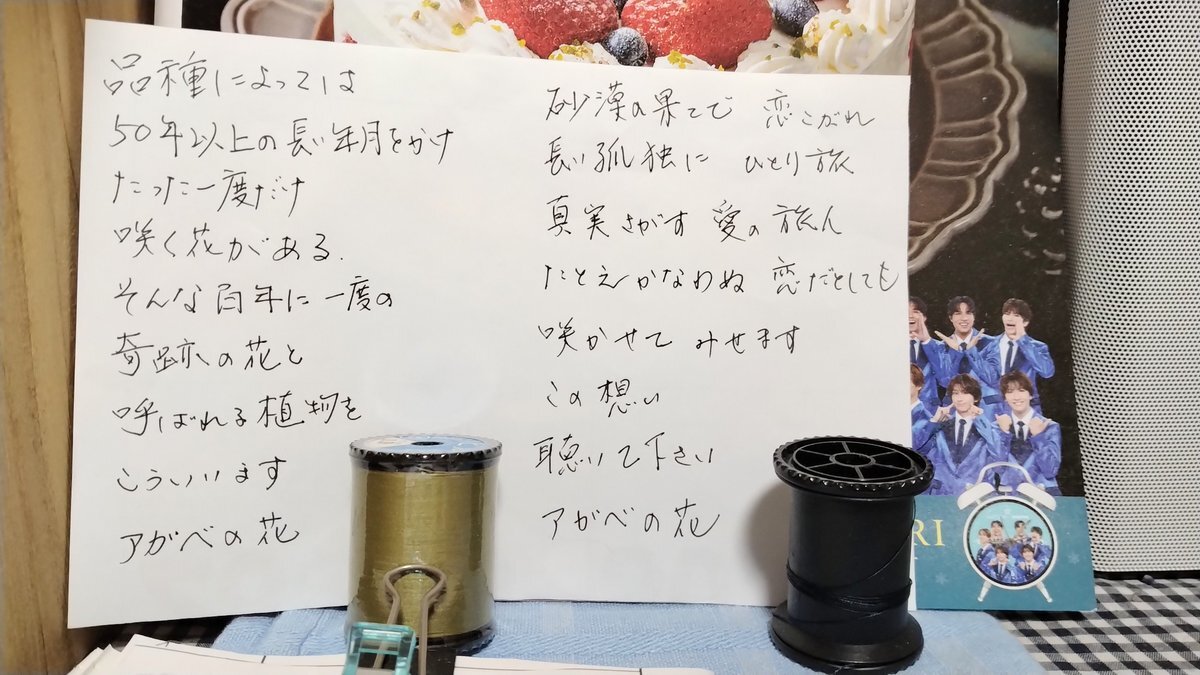 品種によっては
50年以上の長い年月をかけ
たった一度だけ
咲く花がある.
そんな百年に一度の
奇跡の花と
呼ばれる植物を
こういいます
アガベの花
砂漠の果てで 恋こがれ
長い孤独に ひとり旅
真実さがす 愛の旅人
たとえかなわぬ 恋だとしても
咲かせて みせます
この想い
聴いて下さい
アガベの花
RI